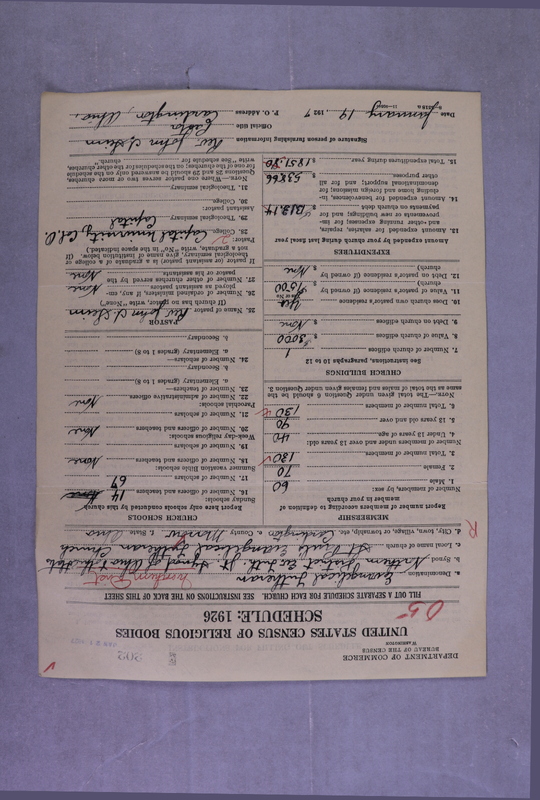 DEPARTMENT OF COMMERCE
BUREAU OF THE CENSUS
WASHINGTON
UNITED STATES CENSUS OF RELIGIOUS BODIES
SCHEDULE: 1926
05
FILL OUT A SEPARATE SCHEDULE FOR EACH CHURCH. SEE INSTRUCTIONS ON THE BACK OF THIS SHEET
a. Denomination Evangelical Lutheran
b. Synod Northern District Ev. Luth. Jt. Synod of Ohio & Other States
c. Local name of church St Pauls Evangelical Lutheran Church
d. City, town, village, or township, etc. Cardington e. County Morrow f. State Ohio
R
MEMBERSHIP
Report number of members according to definition of member in your church
Number of members, by sex:
1. Male 60
2. Female 70
3. Total number of members 130
Number of members under and over 13 years old:
4. Under 13 years of age 40
5. 13 years old and over 90
6. Total number of members 130
NOTE.—The total given under Question 6 should be the same as the total of males and females given under Question 3.
CHURCH BUILDINGS
See instructions, paragraphs 10 to 12
7. Number of church edifices 1
8. Value of church edifices $ 8000
9. Debt on church edifices $ None
10. Does church own pastor's residence Yes
11. Value of pastor's residence (if owned by church) $
12. Debt on pastor's residence (if owned by church) $ None
EXPENDITURES
Amount expended by your church during last fiscal year
13. Amount expended for salaries, repairs, and other running expenses; for improvements or new buildings; and for payments on church debt $ 1313.14
14. Amount expended for benevolences, including home and foreign missions; for denominational support; and for all other purposes $ 538.66
15. Total expenditures during year $ 1851.80
CHURCH SCHOOLS
Report here only schools conducted by this church
Sunday school:
16. Number of officers and teachers 14
17. Number of scholars 67
Summer vacation Bible schools:
18. Number of officers and teachers None
19. Number of scholars
Week-day religious schools:
20. Number of officers and teachers None
21. Number of scholars
Parochial schools:
22. Number of administrative officers None
23. Number of teachers:
a. Elementary (grades 1 to 8)
b. Secondary
24. Number of scholars:
a. Elementary (grades 1 to 8)
b. Secondary
PASTOR
25. Name of pastor Rev John
(If church has no pastor, write "None")
26. Number of ordained ministers, if any, employed as assistants to pastor None
27. Number of other churches served by the pastor or his assistants None
If pastor (or assistant pastor) is a graduate of a college or theological seminary, give name of institution below. (If not a graduate, write "No" in the space indicated.)
Pastor:
28. College Capital University Col. O.
29. Theological seminary Capital
Assistant pastor:
30. College
31. Theological seminary
NOTE.—Where one pastor serves two or more churches, Questions 28 and 29 should be answered only on the schedule for one of the churches; on the schedule for the other churches, write "See schedule for church."
Signature of person furnishing information Rev. John
Official title Pastor
Date January 19 1927 P. O. Address Cardington, Ohio.